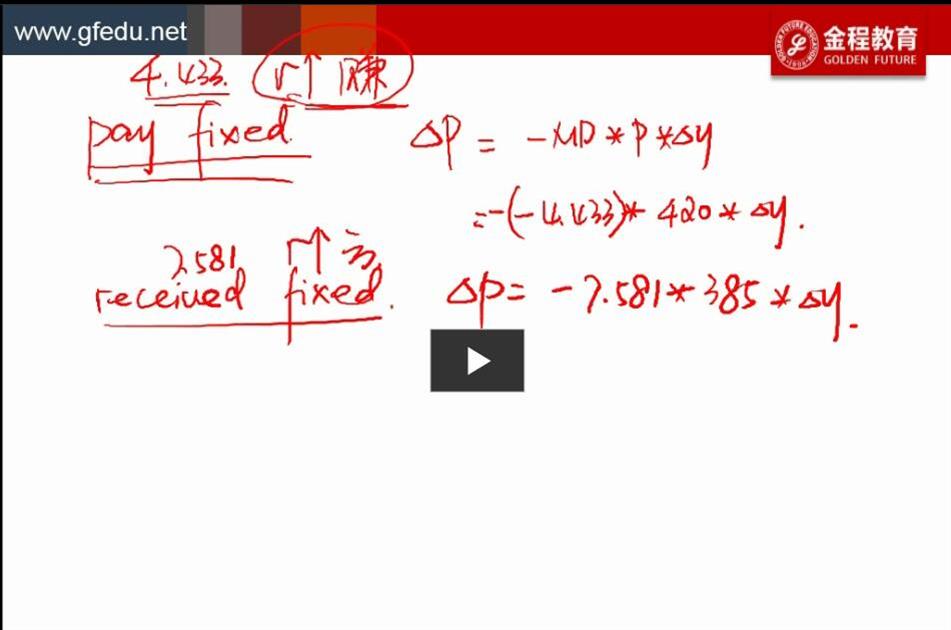 www.gfedu.net
金程教育
GOLDEN FUTURE
4.433 r↑ 赚
pay fixed
ΔP = -MD * P * Δy
= -(-4.433) * 420 * Δy.
7.581 r↑ 亏
received fixed.
ΔP = -7.581 * 385 * Δy.